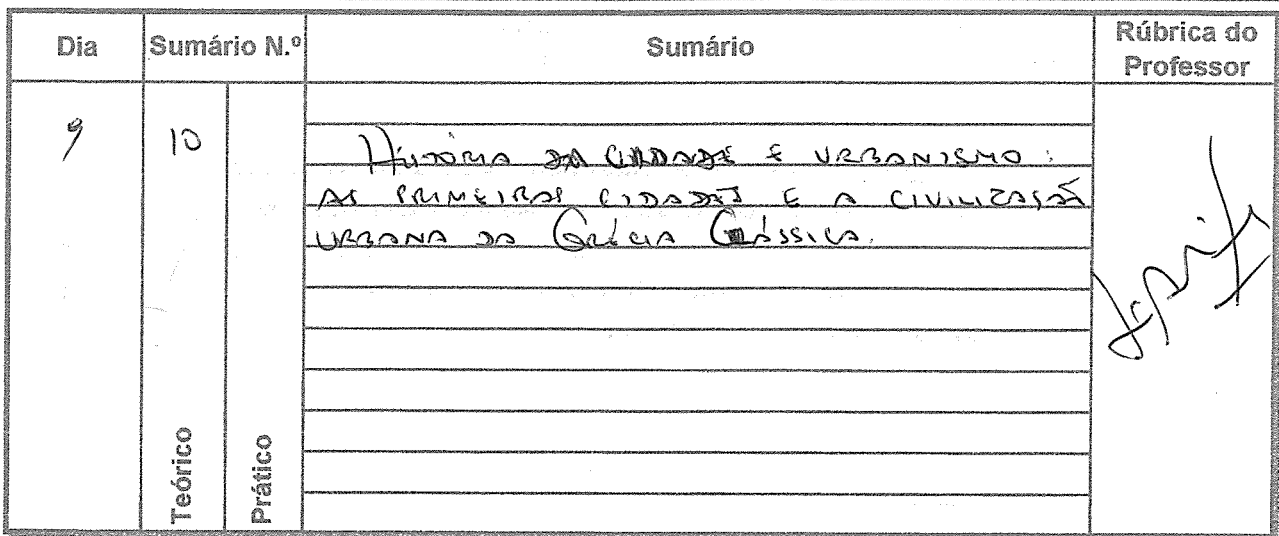 Dia Sumário N.º Sumário Rúbrica do Professor
9 10
História da cidade e urbanismo:
as primeiras cidades e a civilização
urbana da Grécia Clássica.
Teórico
Prático